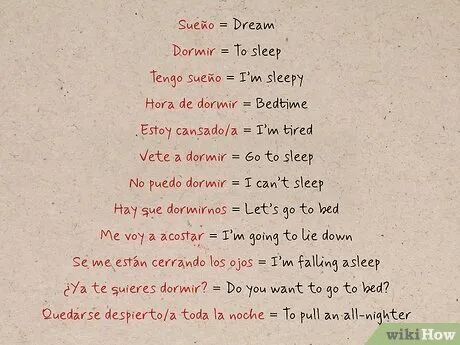 Sueño = Dream
Dormir = To sleep
Tengo sueño = I'm sleepy
Hora de dormir = Bedtime
Estoy cansado/a = I'm tired
Vete a dormir = Go to sleep
No puedo dormir = I can't sleep
Hay que dormirnos = Let's go to bed
Me voy a acostar = I'm going to lie down
Se me están cerrando los ojos = I'm falling asleep
¿Ya te quieres dormir? = Do you want to go to bed?
Quedarse despierto/a toda la noche = To pull an all-nighter
wikiHow